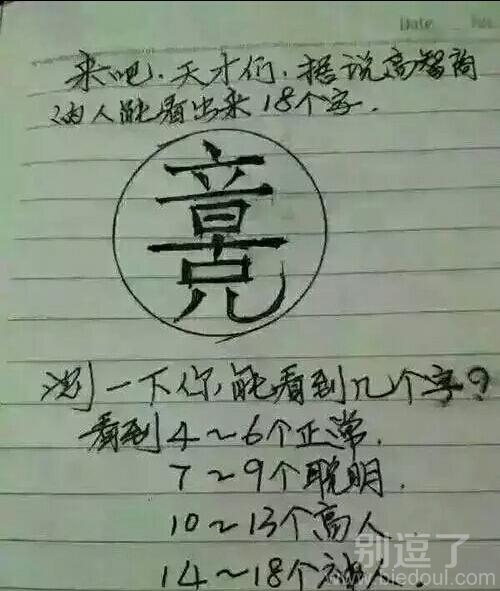 Date
来吧.天才们.据说高智商
的人能看出来18个字.
测一下你能看到几个字?
看到4～6个正常.
7～9个聪明.
10～13个高人
14～18个神人.
别逗了
www.biedoul.com